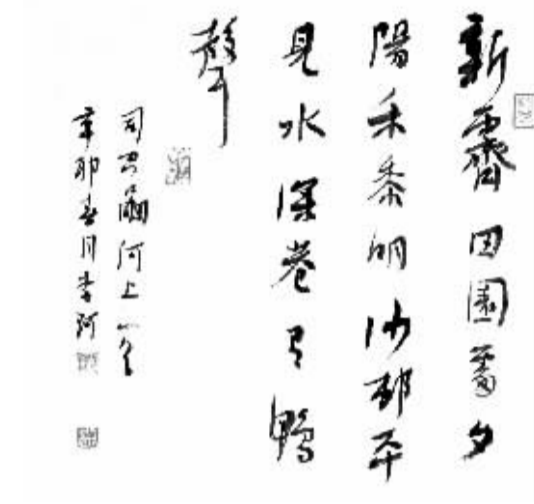 新霽田園處夕
陽禾黍明沙邨平
見水深巷有鷗
聲
司空圖河上一首
辛卯春月李